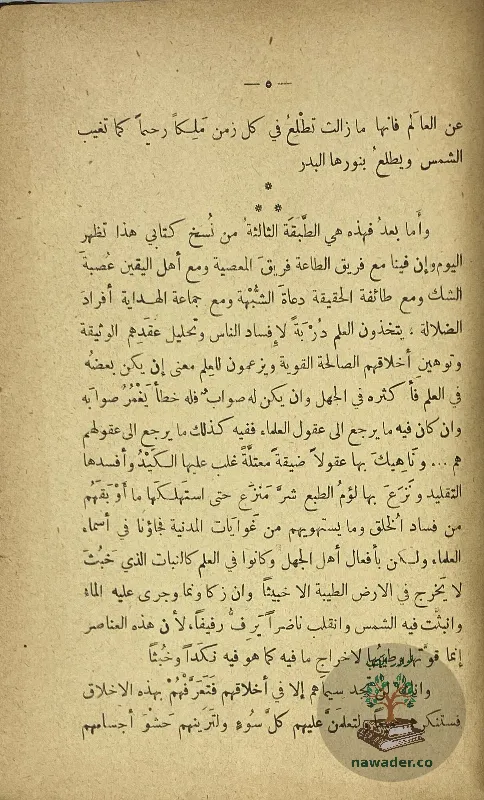 — ٥ —
عن العالَم فانها ما زالت تطْلِعُ في كل زمن مَلِكاً رحيماً كما تغيب
الشمس ويطلعُ بنورها البدر
*
* *
وأما بعدُ فهذه هي الطَّبَقَة الثالثةُ من نُسخ كتابي هذا تظهر
اليوم وإن فينا مع فريق الطاعة فريقَ المعصية ومع أهل اليقين عُصبةَ
الشك ومع طائفة الحقيقة دعاةَ الشُّبْهة ومع جماعة الهداية أفرادَ
الضلالة ، يتخذون العلم دُرْبةً لإفساد الناس وتحليل عُقَدهم الوثيقة
وتوهين أخلاقهم الصالحة القوية ويزعمون للعلم معنى إن يكن بعضُه
في العلم فأكثره في الجهل وان يكن له صوابٌ فله خطأ يَغْمُرُ صوابه
وان كان فيه ما يرجع الى عقول العلماء ففيه كذلك ما يرجع الى عقولهم
هم ... وناهيكَ بها عقولاً ضيقةً معتلَّةً غلب عليها الكَيْدُ وأفسدها
التقليد ونَزَعَ بها لؤمُ الطبع شرَّ مَنزَع حتى استهلكها ما أوْبقهُم
من فساد الخلق وما يستهويهم من غَوايات المدنية فجاؤنا في أسماء
العلماء ولكن بأفعال أهل الجهل وكانوا في العلم كالنبات الذي خَبُثَ
لا يَخرج في الارض الطيبة الا خبيثاً وان زكا ونما وجرى عليه الماء
وانبثَّت فيه الشمس وانقلب ناضراً يَرفُّ رفيفاً، لأن هذه العناصر
إنما قوَّتها وطبعُها لاخراج ما فيه كما هو فيه نكداً وخُبثاً
تجد سيماهم إلا في أخلاقهم فتَعَرَّفْهُمْ بهذه الاخلاق
لتعلمنَّ عليهم كلَّ سُوءٍ ولترَينهم حَشْوَ أجسامهم
nawader.co